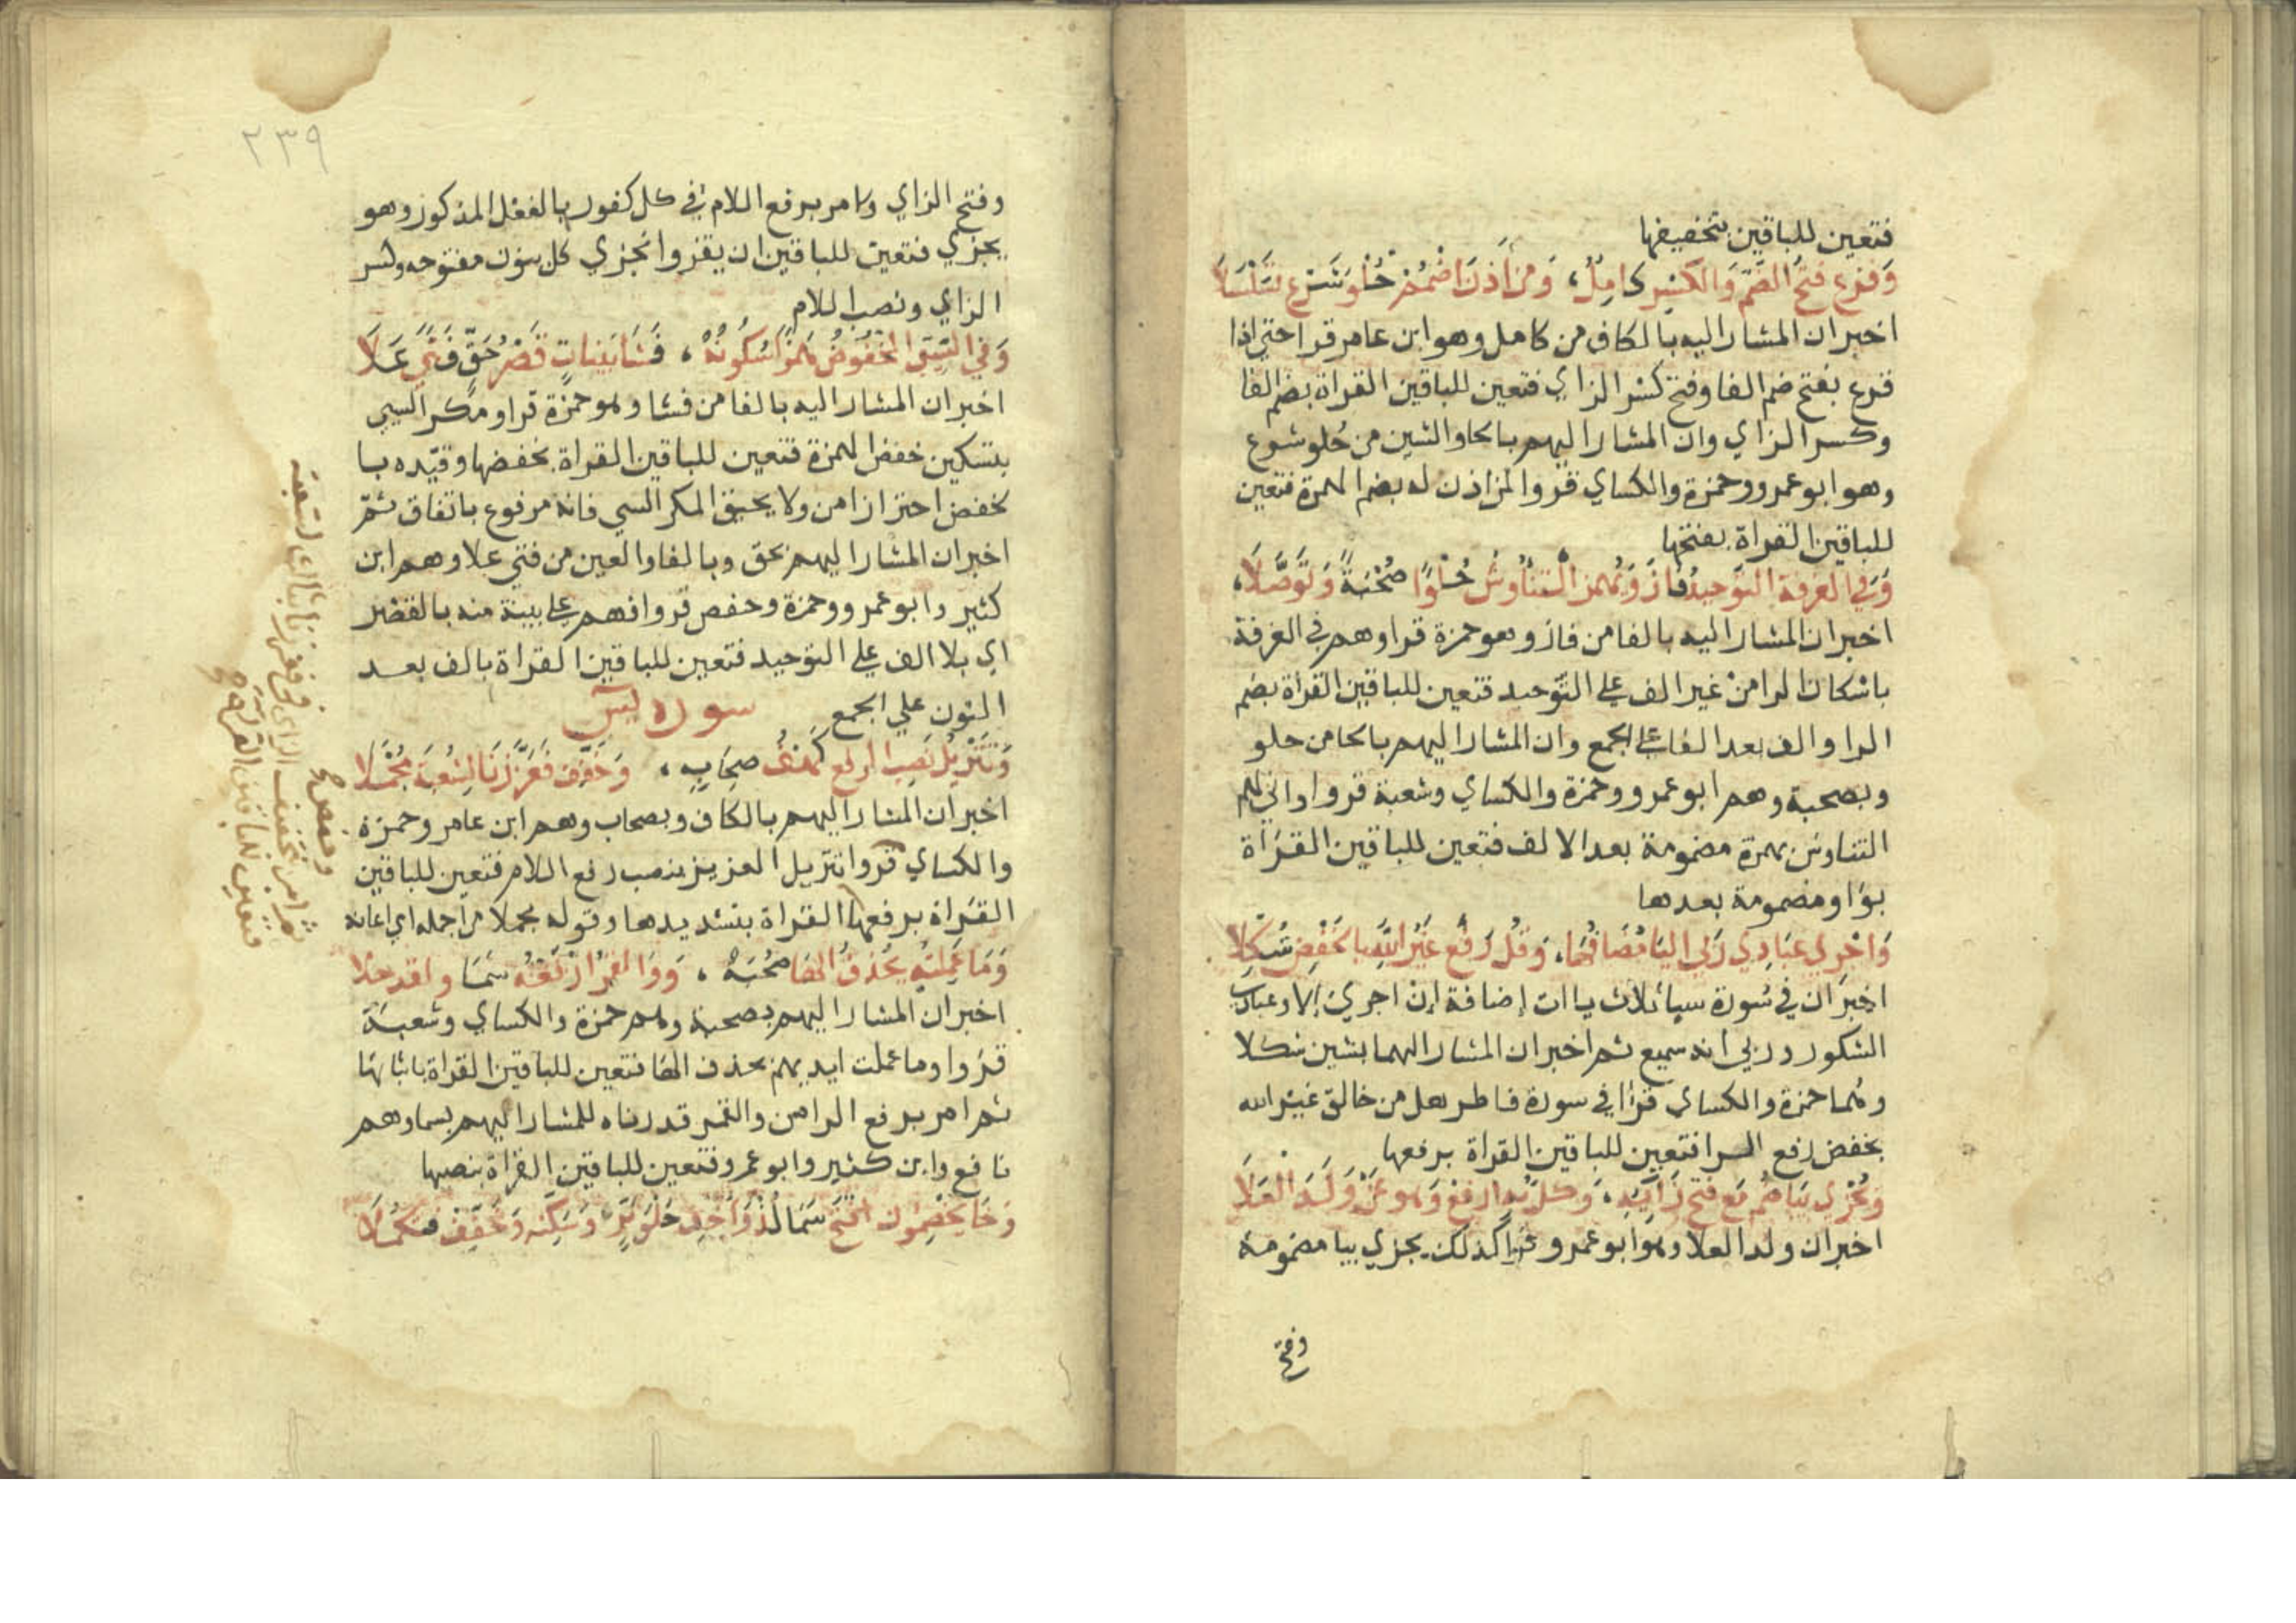 فتعين للباقين بتخفيفها
وَفزع فتحُ الضَّمِّ وَالكَسْرِ كامِلٌ، وَمَن أَذِنَ اضْمُمْ حُلوَ شَرْعٍ تَسَلْسَلَا
اخبر ان المشار اليه بالكاف من كامل وهو ابن عامر قرا حتى اذا
فزع بفتح ضم الفا وفتح كسر الزاي فتعين للباقين القراة بضم الفا
وكسر الزاي وان المشار اليهم بالحا والشين من حُلو شرع
وهو ابو عمرو وحمزة والكساي قروا لمن اذن له بضم الهمزة فتعين
للباقين القراة بفتحها
وَفي الغرفة التوحيدُ فازَ وَيُهمز التَّنَاوُشُ حُلوًا صُحْبَةً وَتَوَصَّلَا،
اخبر ان المشار اليه بالفا من فاز وهو حمزة قرا وهم في الغرفة
باسكان الرا من غير الف على التوحيد فتعين للباقين القراة بضم
الرا والف بعد الفا على الجمع وان المشار اليهم بالحا من حلو
وبصحبة وهم ابو عمرو وحمزة والكساي وشعبة قروا واني لهم
التناوش بهمزة مضمومة بعد الالف فتعين للباقين القراة
بواو مضمومة بعدها
وَاجْري عبَادي رَبي اليا مُضَافُها، وَقُل رَفْع غَيْرُ اللَّهِ بالخَفْضِ شُكِّلَا
اخبر ان في سُورة سبا ثلاث ياات إضافة إن اجري إلا وعبادي
الشكور وربي انه سميع ثم اخبر ان المشار اليهما بشين شكلا
وهما حمزة والكساي قرا في سورة فاطر هل من خالق غير الله
بخفض رفع الرا فتعين للباقين القراة برفعها
وَيُجْزي بيَا ضُم مَع فتح زَايِه، وَكل به ارفع وَهو عَنْ وَلَدِ العَلَا
اخبر ان ولد العلا وهو ابو عمرو قرا كذلك يجزي بيا مضمومة
وفتح
٢٣٩
وفتح الزاي وامر برفع اللام في كل كفور بالفعل المذكور وهو
يجزي فتعين للباقين ان يقروا نجزي كل بنون مفتوحه وكسر
الزاي ونصب اللام
وَفي السَّيِّئِ المَخْفُوضِ هَمْزًا سُكُونُهُ، فَشَا بَيِّنَاتٍ قَصْرُ حَقٍّ فَتًى عَلَا
اخبر ان المشار اليه بالفا من فشا وهو حمزة قرا ومكر السيي
بتسكين خفض الهمزة فتعين للباقين القراة بخفضها وقيّده با
لخفض احترازا من ولا يحيق المكر السي فانه مرفوع باتفاق ثمّ
اخبر ان المشار اليهم بحق وبالفا والعين من فتى علا وهم ابن
كثير وابو عمرو وحمزة وحفص قروا فهم على بينة منه بالقصر
اي بلا الف على التوحيد فتعين للباقين القراة بالف بعد
النون على الجمع سورة يسٓ
وَتَنْزِيلُ نَصبُ الرفع كَهْفُ صِحَابِهِ، وَخَفِّف فَعَزَّزْنَا لِشُعْبَةَ مُجْمِلَا
اخبر ان المشار اليهم بالكاف وبصحاب وهم ابن عامر وحمزة
والكساي قروا تنزيل العزيز بنصب رفع اللام فتعين للباقين
القراة برفعها القراة بتشديدها وقوله مجملا من اجمله اي اعانه
وَمَا عَمِلَتْهُ يَحْذفُ الهَا صُحْبَةٌ، وَوَالقَمَرُ ارْفَعْهُ سَمَا ولقد حلا
اخبر ان المشار اليهم بصحبة وهم حمزة والكساي وشعبة
قروا وما عملت ايديهم بحذف الها فتعين للباقين القراة باثباتها
ثم امر برفع الرا من والقمر قدرناه للمشار اليهم بسما وهم
نافع وابن كثير وابو عمرو فتعين للباقين القراة بنصبها
وَخَا يَخْصِمُونَ افْتَحْ سَمَا لُذْ وَأَخْفِ حُلْوَ بَرٍّ وَسَكِّنْهُ وَخَفِّفْ فَتُكْمِلَا
وحفص
ثم امر بتخفيف الزاي في فعززنا بثالث لشعبة
فتعين للباقين القراة